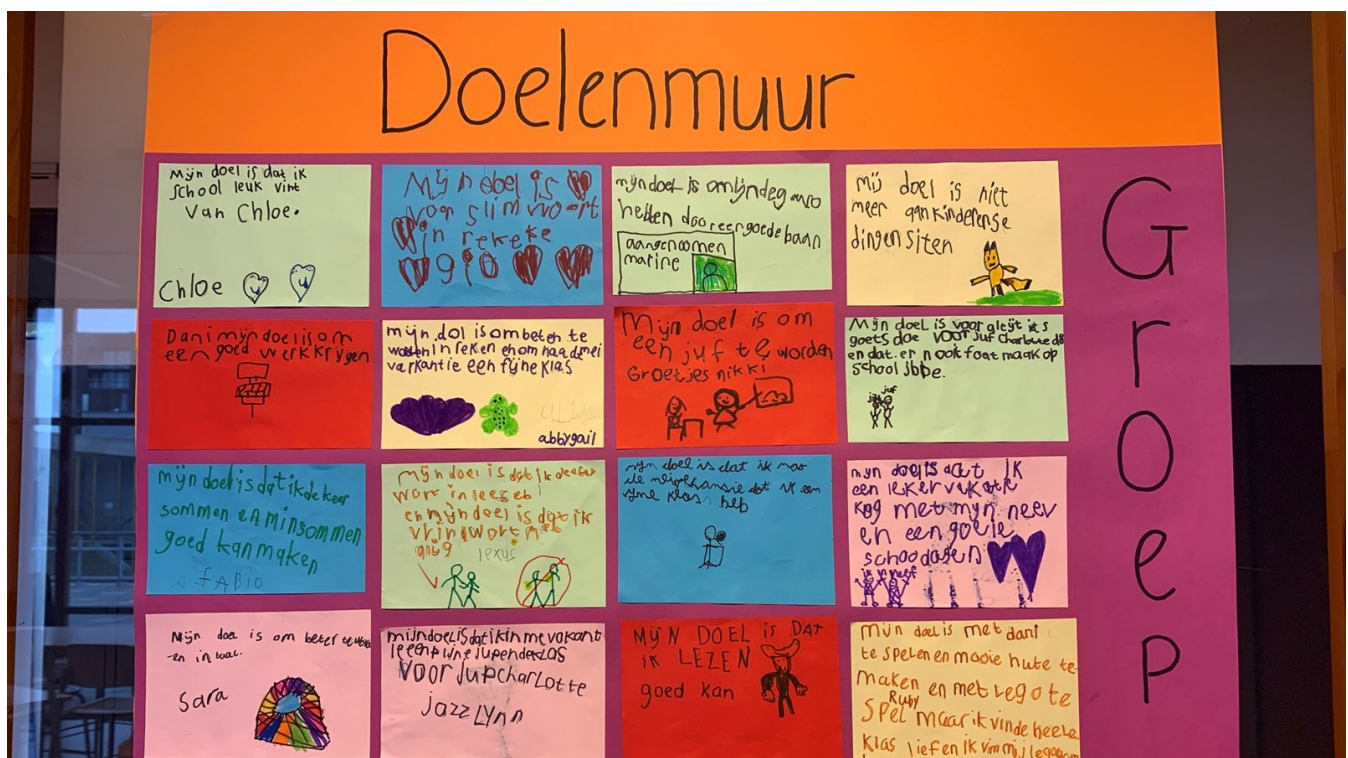 Doelenmuur
Groep
Mijn doel is dat ik
school leuk vint
van Chloe.
Chloe
Mijn doel is
voor slim woort
in rekeke
gio
mijn doel is om lijn deg auro
hebben door een goede baan
aangenoomen
marine
mij doel is niet
meer aan kinderense
dingen siten
Dani mijn doel is om
een goed werk krijgen
mijn dol is om beten te
worden in reken en om na de mei
varkantie een fijne klas
abbygail
Mijn doel is om
een juf te worden
Groetjes nikki
Mijn doel is voor
goets doe voor juf Charlotte
en dat er nooit foat maak op
school
juf
mijn doel is dat ik de keer
sommen en minsommen
goed kan maken
fABio
mijn doel is dat ik
wor in lees eb
en mijn doel is dat ik
vrin wort met
lexus
mijn doel is dat ik naa
de dat ik een
klas heb
mijn doel is dat ik
een leker vakatie
krijg met mijn neev
en een goeie
schooldagen
Mijn doel is om beter te
-en in taal.
Sara
mijn doel is dat ik in me vakant
ie een
voor jup charlotte
jazzlynn
MijN DOEL is DAT
ik LEZEN
goed kan
Mijn doel is met dani
te spelen en mooie hute te
maken en met lego te
Ruby
spel maar ik vinde heele
klas lief en ik vin mij